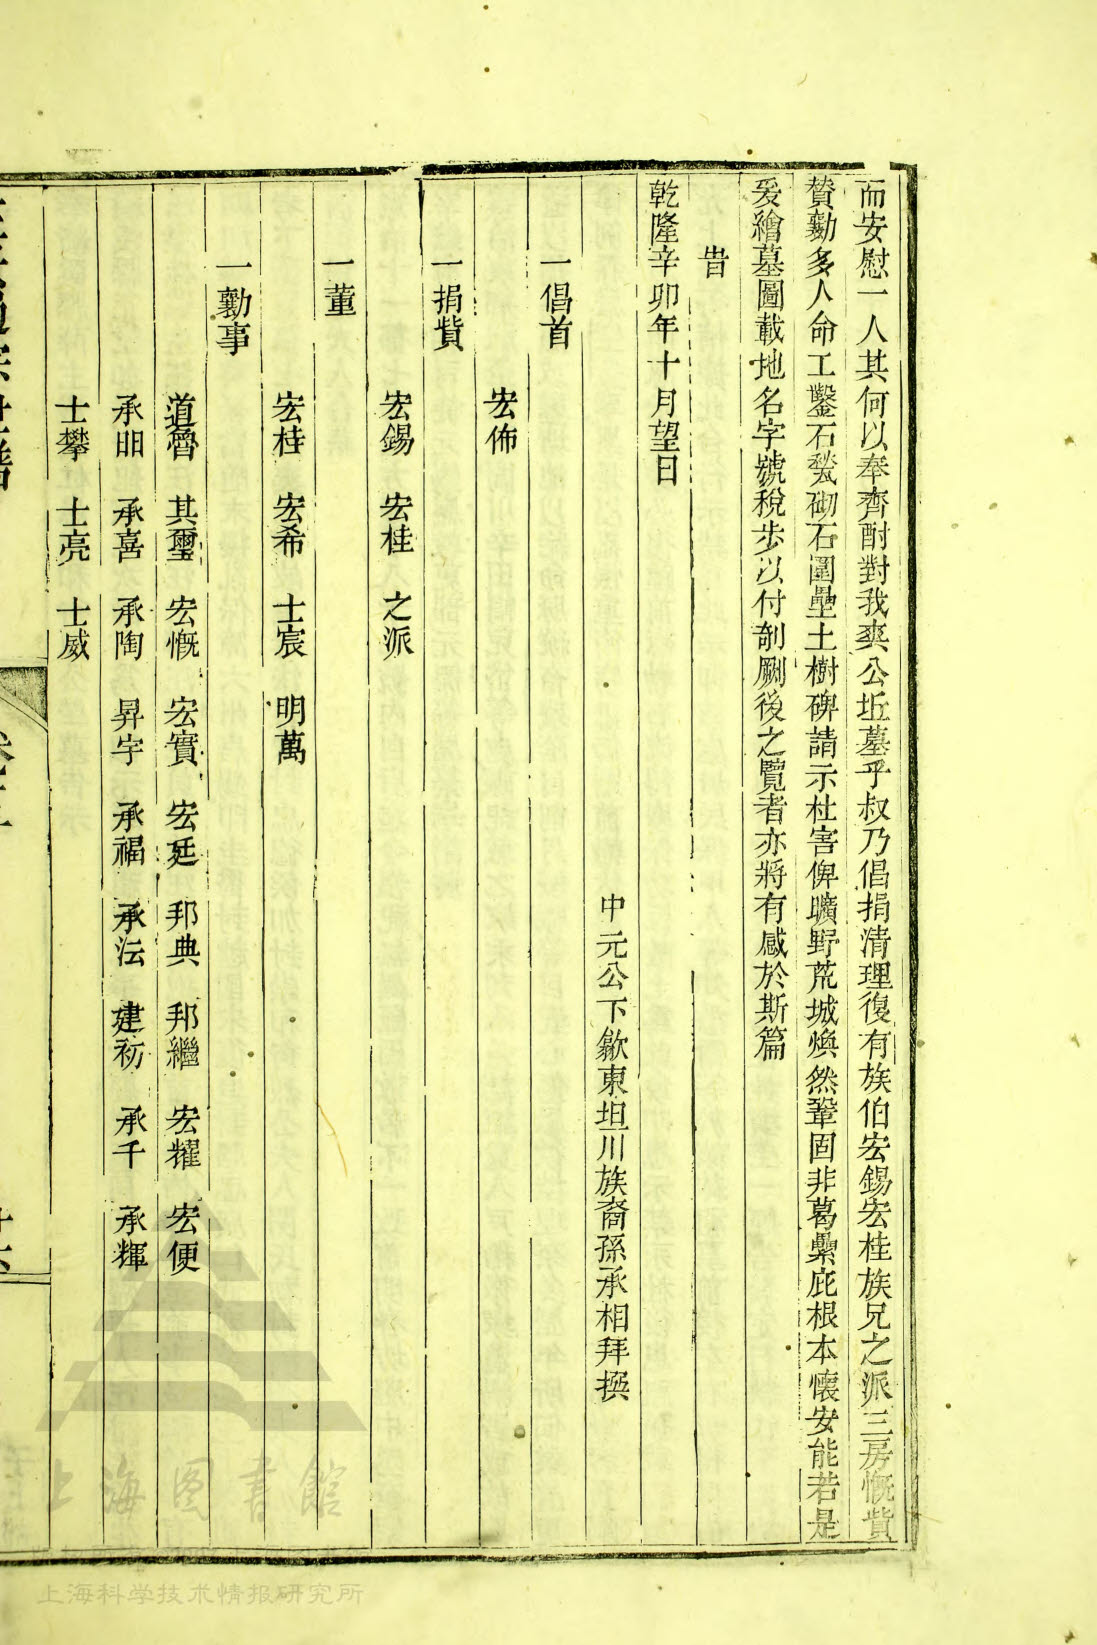 而安慰一人其何以奉齊酎對我爽公坵墓乎叔乃倡捐清理復有族伯宏錫宏桂族兄之派三房慨貲
贊勷多人命工鑿石甃砌石圍壘土樹碑請示杜害俾曠野荒城煥然鞏固非葛虆庇根本懷安能若是
爰繪墓圖載地名字號稅步以付剞劂後之覽者亦將有感於斯篇
旹
乾隆辛卯年十月望日
中元公下歙東坦川族裔孫承相拜撰
一倡首
宏佈
一捐貲
宏錫 宏桂 之派
一董
宏桂 宏希 士宸 明萬
一勷事
道魯 其璽 宏慨 宏實 宏廷 邦典 邦繼 宏耀 宏便
承昍 承喜 承陶 昇宇 承福 承沄 建礽 承千 承輝
士攀 士亮 士威
上海图書館
上海科学技术情报研究所